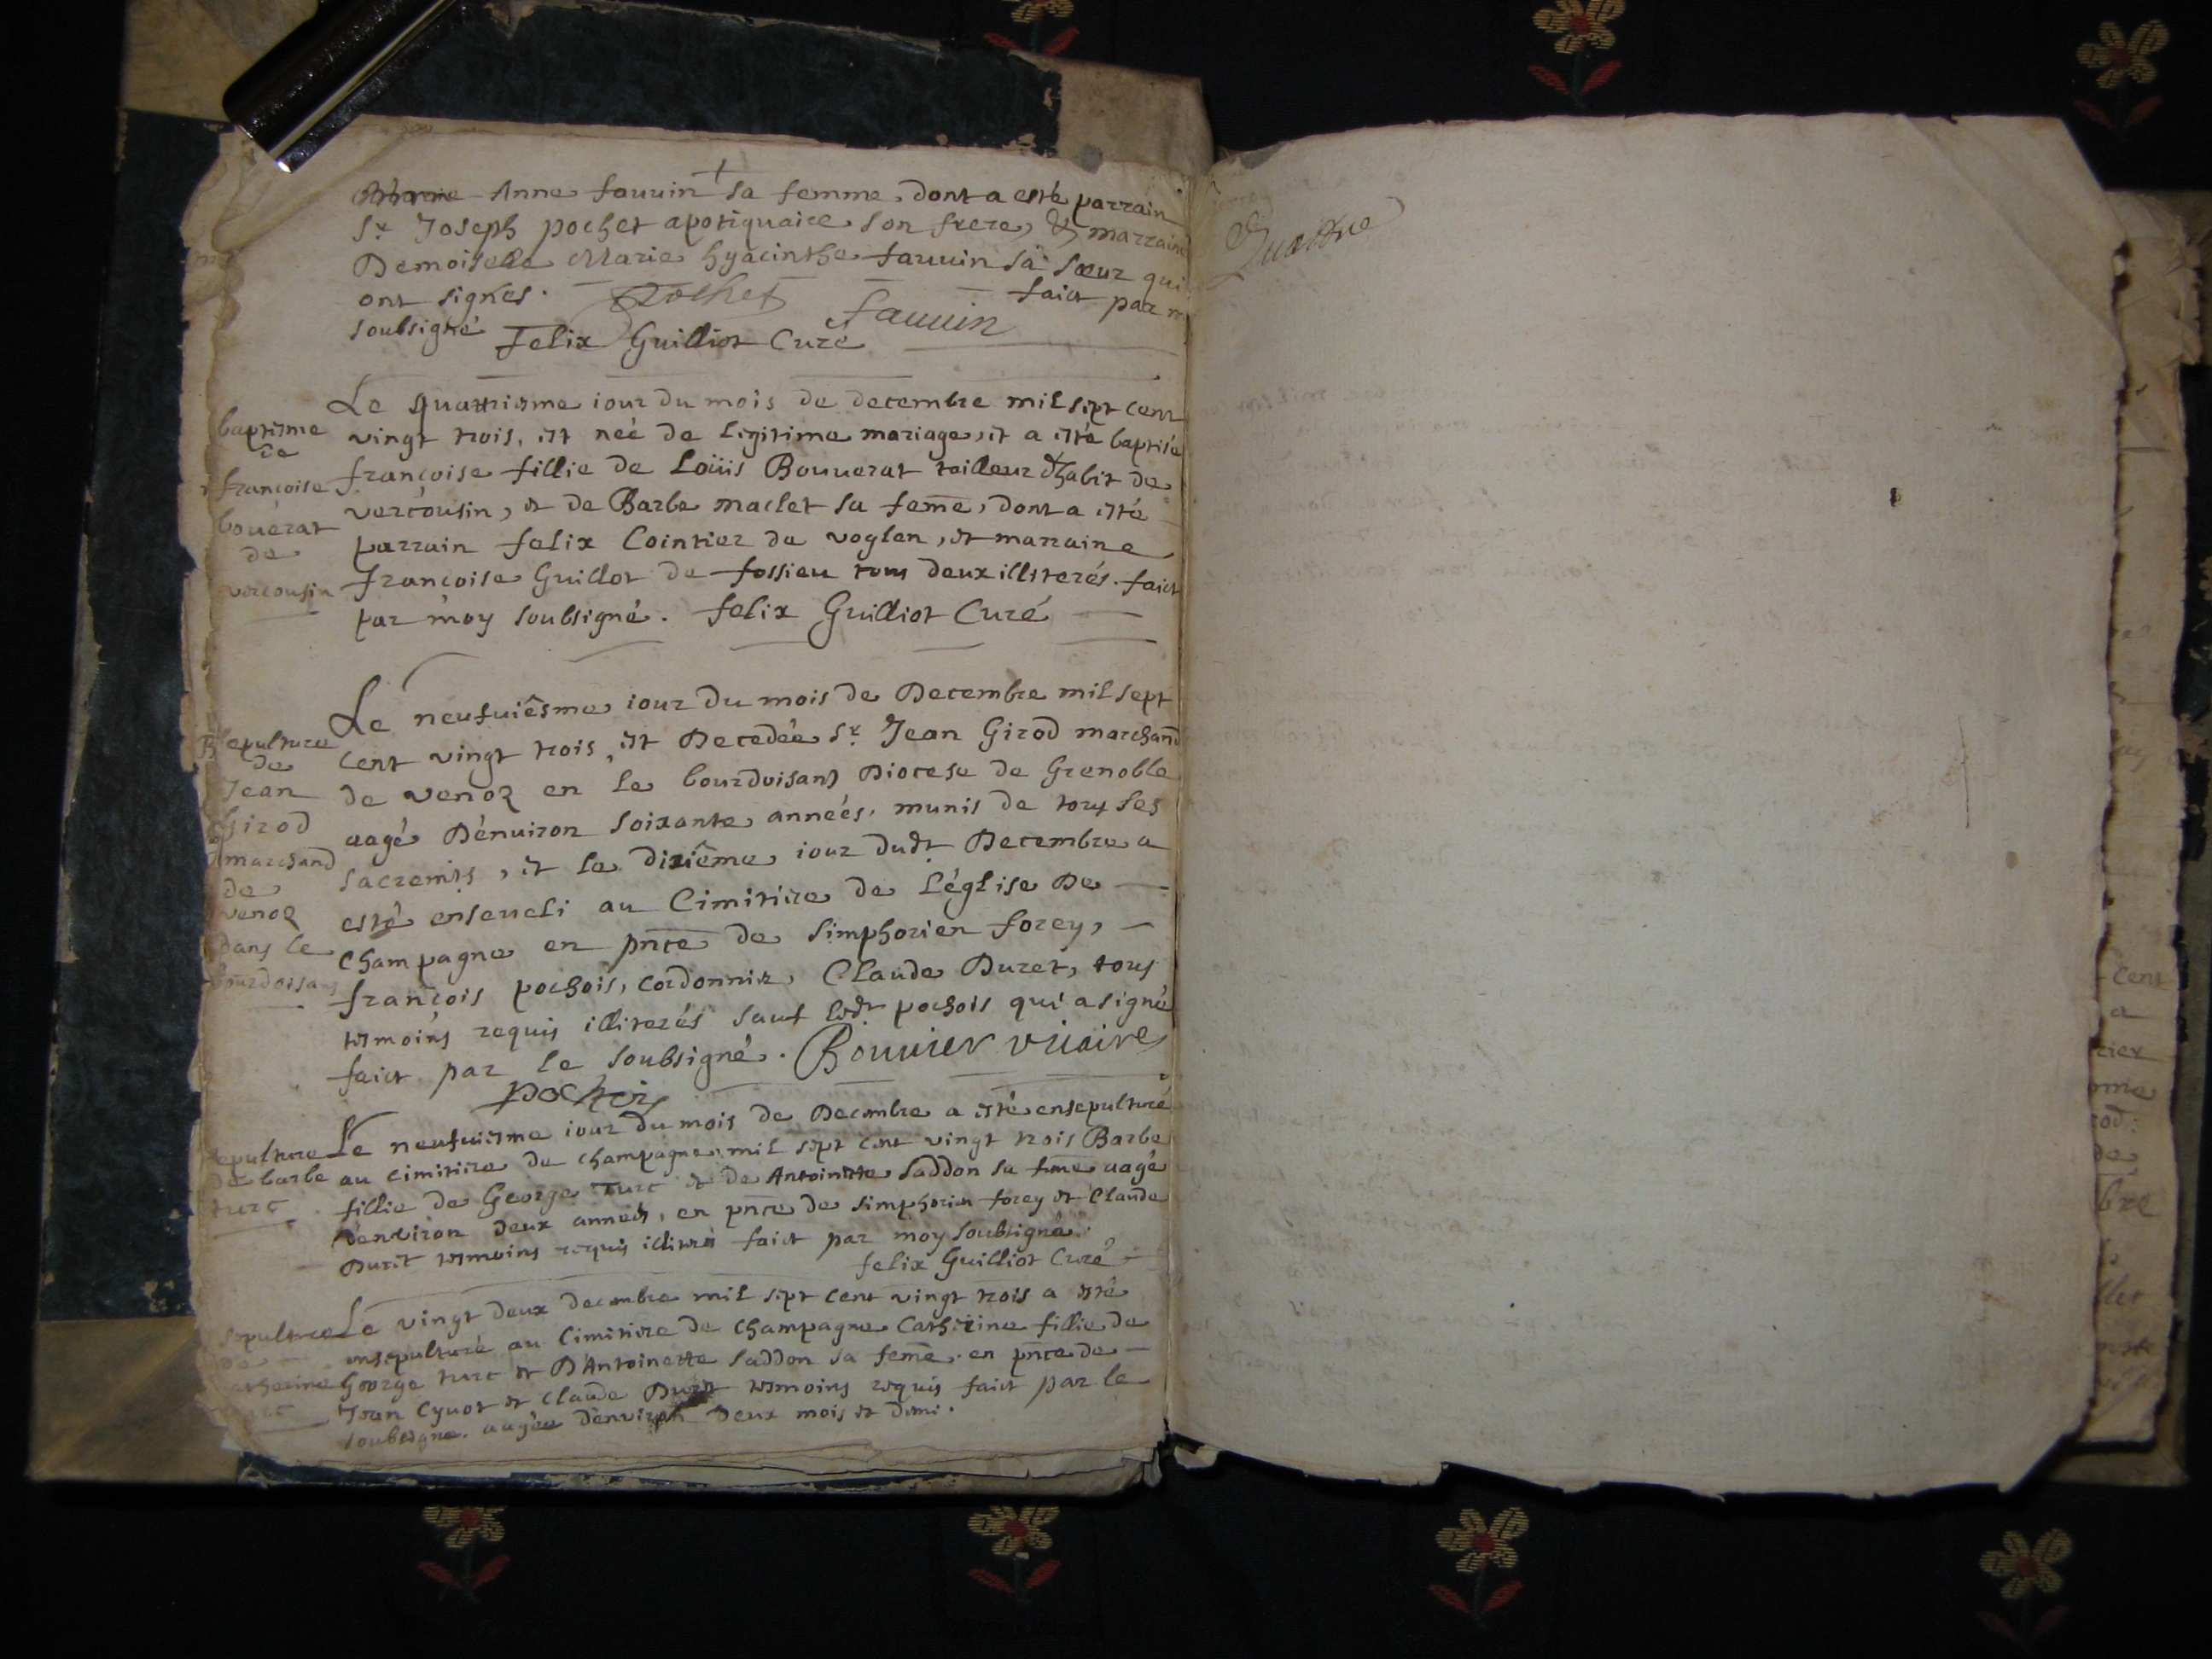 Anne fauuin sa femme, dont a esté parrain
Sr Joseph pochet apotiquaire son frere, & marraine
Demoiselle Marie hyacinthe fauuin sa sœur qui
ont signés. Pochet fauuin faict par m
soubsigné felix Guilliot Curé
baptisme
de
françoise
bouerat
de
vercousin
Le quattriesme iour du mois de decembre mil sept cent
vingt trois, est neé de legitime mariage, et a esté baptisé
françoise fillie de Loüis Bouuerat tailleur d'habit de
vercousin, et de Barbe maclet sa feme, dont a esté
parrain felix Cointier de voglen, et marraine
françoise Guillot de fossieu tous deux illiterés. faict
par moy soubsigné. felix Guilliot Curé
sepulture
de
Jean
Girod
marchand
de
venoz
dans le
bourdoisans
Le neufuiêsme iour du mois de Decembre mil sept
cent vingt trois, est Decedée Sr. Jean Girod marchand
de venoz en le bourdoisans Diocese de Grenoble
aagé D'enuiron soixante années, munis de tous ses
sacremts, et le dixiême iour dudt Decembre a
esté enseueli au Cimitiere de l'église De
Champagne en pnce de Simphorien forey,
françois pochois, cordonnier, Claude Duret, tous
tesmoins requis illiterés sauf ledt pochois qui a signé
faict par le soubsigné. Bouuier vicaire
pochois
sepulture
de barbe
turc
Le neufuiesme iour du mois de Decembre a esté ensepulturé
au cimitiere de champagne mil sept cent vingt trois Barbe
fillie de George Turc et de Antoinette Saddon sa feme aagé
d'environ deux années, en pnce de simphorien forey et Claude
Duret tesmoins requis illiterés faict par moy soubsigné.
felix Guilliot Curé
sepulture
de
catherine
turc
Le vingt deux decembre mil sept cent vingt trois a esté
ensepulturé au Cimitiere de Champagne Catherine fillie de
George turc et D'Antoinette Saddon sa feme. en pnce de
Jean Cyuot et Claude Duret tesmoins requis faict par le
soubsigne. aagée d'environ deux mois et demi.